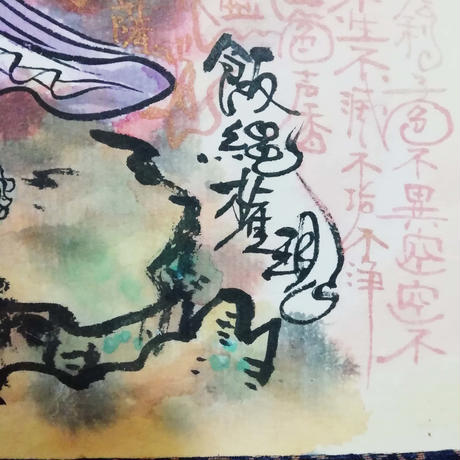 色不異空空不
生不滅不垢不浄
色声香
飯縄権現